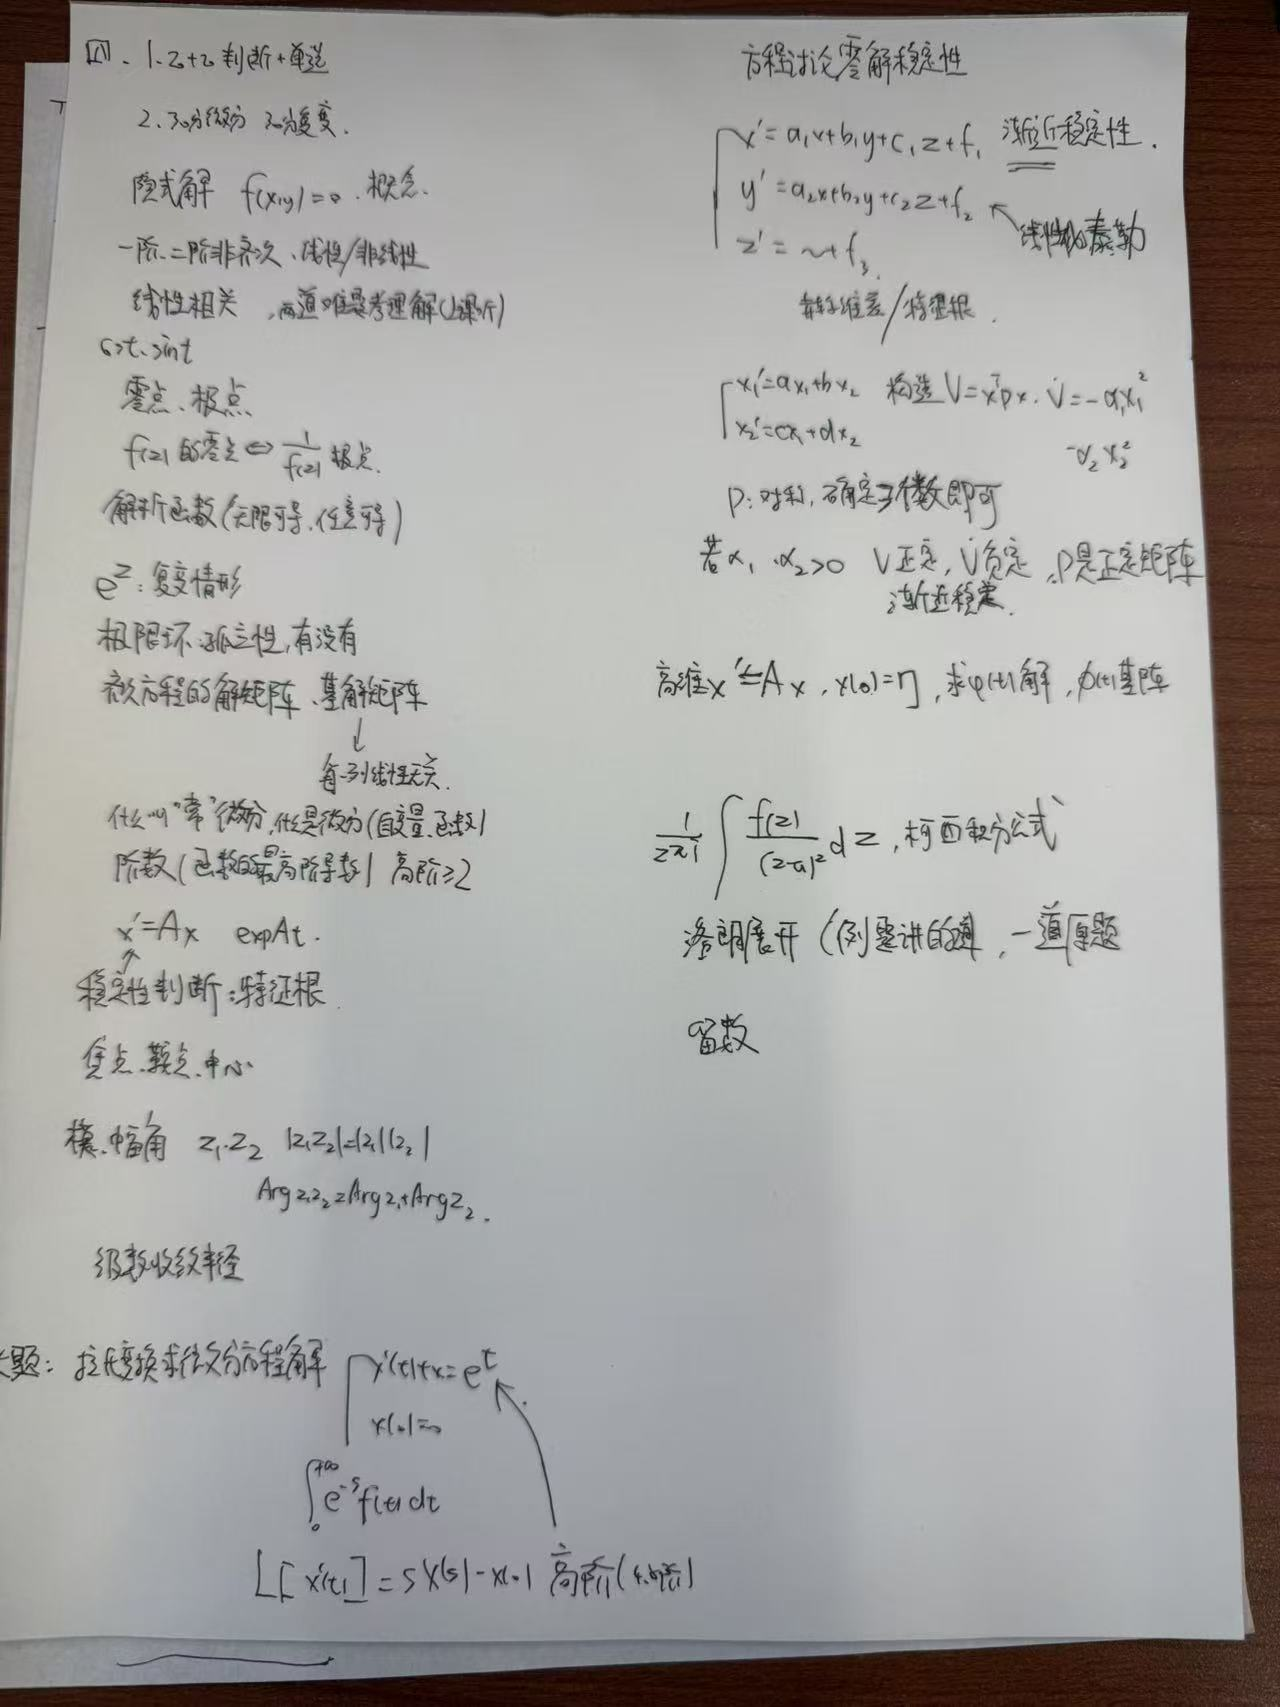 四、1. 20+20 判断+单选
2. 30分微分 30分复变.
隐式解 f(x,y)=0. 概念.
一阶、二阶非齐次、线性/非线性
线性相关, 两道难题考理解(上课听)
cost、sint
零点、极点
f(z)的零点⇔1/f(z) 极点.
解析函数(无限可导、任意可导)
e^z: 复变情形
极限环:孤立性, 有没有
齐次方程的解矩阵、基解矩阵
↓
每列线性无关.
什么叫"常"微分, 什么是微分(自变量、函数)
阶数(函数的最高阶导数) 高阶≥2
x'=Ax expAt.
稳定性判断:特征根.
焦点、鞍点、中心
模、幅角 z₁·z₂ |z₁z₂|=|z₁||z₂|
Argz₁z₂=Argz₁+Argz₂.
级数收敛半径
大题: 拉氏变换求微分方程解 x'(t)+x=e^t
x(0)=0
∫₀^{+∞} e^{-s}f(t)dt
L[x'(t)]=sX(s)-x(0) 高阶(4.5阶)
方程讨论零解稳定性
x'=a₁x+b₁y+c₁z+f₁ 渐近稳定性.
y'=a₂x+b₂y+c₂z+f₂ ↖线性化泰勒
z'=~+f₃.
赫尔维茨/特征根.
x₁'=ax₁+bx₂ 构造V=x^TPx. V̇=-α₁x₁²
x₂'=cx₁+dx₂ -α₂x₂²
P:对称, 确定3个数即可
若α₁、α₂>0 V正定, V̇负定, P是正定矩阵
渐近稳定.
高维x'=Ax, x(0)=η, 求φ(t)解, φ(t)基阵
1/2πi ∫ f(z)/(z-a)² dz, 柯西积分公式
洛朗展开(例题讲的, 一道原题
留数